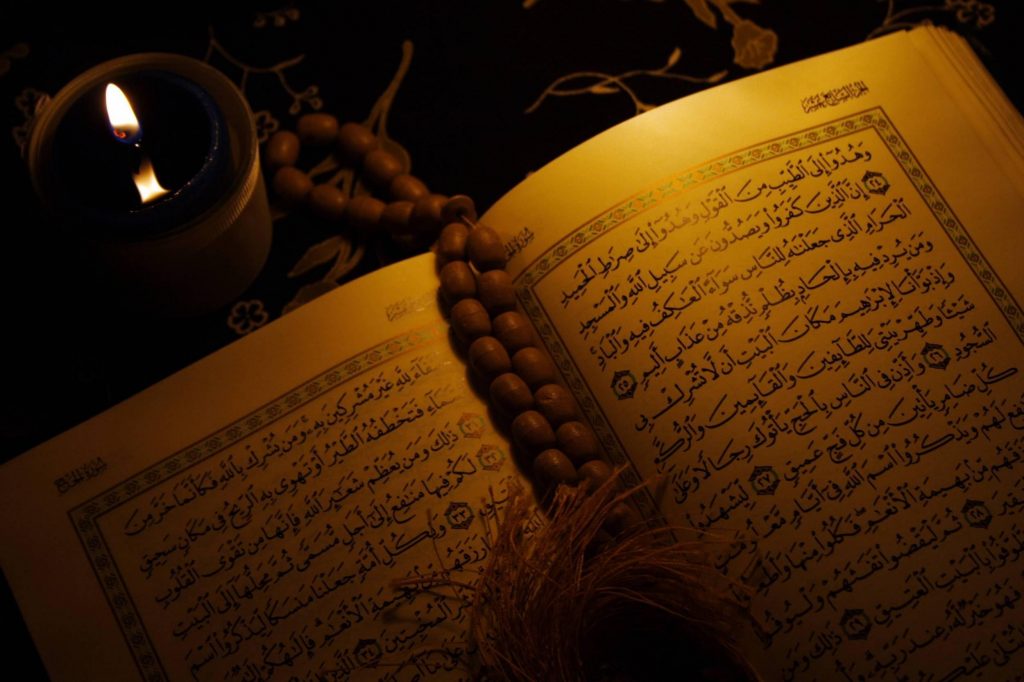 الجزء السابع عشر
وَهُدُوٓا۟ إِلَى ٱلطَّيِّبِ مِنَ ٱلْقَوْلِ وَهُدُوٓا۟ إِلَىٰ صِرَٰطِ ٱلْحَمِيدِ
٢٤ إِنَّ ٱلَّذِينَ كَفَرُوا۟ وَيَصُدُّونَ عَن سَبِيلِ ٱللَّهِ وَٱلْمَسْجِدِ
ٱلْحَرَامِ ٱلَّذِى جَعَلْنَٰهُ لِلنَّاسِ سَوَآءً ٱلْعَٰكِفُ فِيهِ وَٱلْبَادِ
وَمَن يُرِدْ فِيهِ بِإِلْحَادٍۭ بِظُلْمٍ نُّذِقْهُ مِنْ عَذَابٍ أَلِيمٍ ٢٥
وَإِذْ بَوَّأْنَا لِإِبْرَٰهِيمَ مَكَانَ ٱلْبَيْتِ أَن لَّا تُشْرِكْ بِى
شَيْـًٔا وَطَهِّرْ بَيْتِىَ لِلطَّآئِفِينَ وَٱلْقَآئِمِينَ وَٱلرُّكَّعِ
ٱلسُّجُودِ ٢٦ وَأَذِّن فِى ٱلنَّاسِ بِٱلْحَجِّ يَأْتُوكَ رِجَالًا وَعَلَىٰ
كُلِّ ضَامِرٍ يَأْتِينَ مِن كُلِّ فَجٍّ عَمِيقٍ ٢٧ لِّيَشْهَدُوا۟
لَهُمْ وَيَذْكُرُوا۟ ٱسْمَ ٱللَّهِ فِىٓ أَيَّامٍ
مِّنۢ بَهِيمَةِ ٱلْأَنْعَٰمِ فَكُلُوا۟ مِنْهَا
٢٨ ثُمَّ لْيَقْضُوا۟ تَفَثَهُمْ وَلْيُوفُوا۟
بِٱلْبَيْتِ ٱلْعَتِيقِ ٢٩ ذَٰلِكَ وَمَن
فَهُوَ خَيْرٌ لَّهُۥ عِندَ رَبِّهِۦ
سورة الحج
حُنَفَآءَ لِلَّهِ غَيْرَ مُشْرِكِينَ بِهِۦ وَمَن يُشْرِكْ بِٱللَّهِ فَكَأَنَّمَا خَرَّ مِنَ
ٱلسَّمَآءِ فَتَخْطَفُهُ ٱلطَّيْرُ أَوْ تَهْوِى بِهِ ٱلرِّيحُ فِى مَكَانٍ سَحِيقٍ
٣١ ذَٰلِكَ وَمَن يُعَظِّمْ شَعَٰٓئِرَ ٱللَّهِ فَإِنَّهَا مِن تَقْوَى ٱلْقُلُوبِ
٣٢ لَكُمْ فِيهَا مَنَٰفِعُ إِلَىٰٓ أَجَلٍ مُّسَمًّى ثُمَّ مَحِلُّهَآ إِلَى ٱلْبَيْتِ
٣٣ وَلِكُلِّ أُمَّةٍ جَعَلْنَا مَنسَكًا لِّيَذْكُرُوا۟ ٱسْمَ
ٱلْأَنْعَٰمِ فَإِلَٰهُكُمْ
٣٤ ٱلَّذِينَ